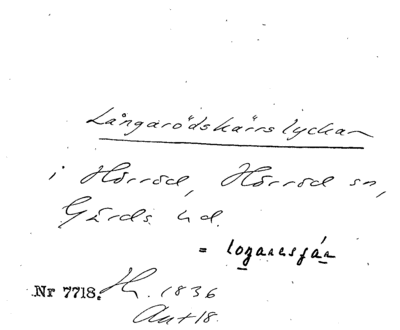 Långarödskärrslyckan
i Hörröd, Hörröd sn,
Gärds hd.
=
Nr 7718. Hn. 1836
Akt 18.